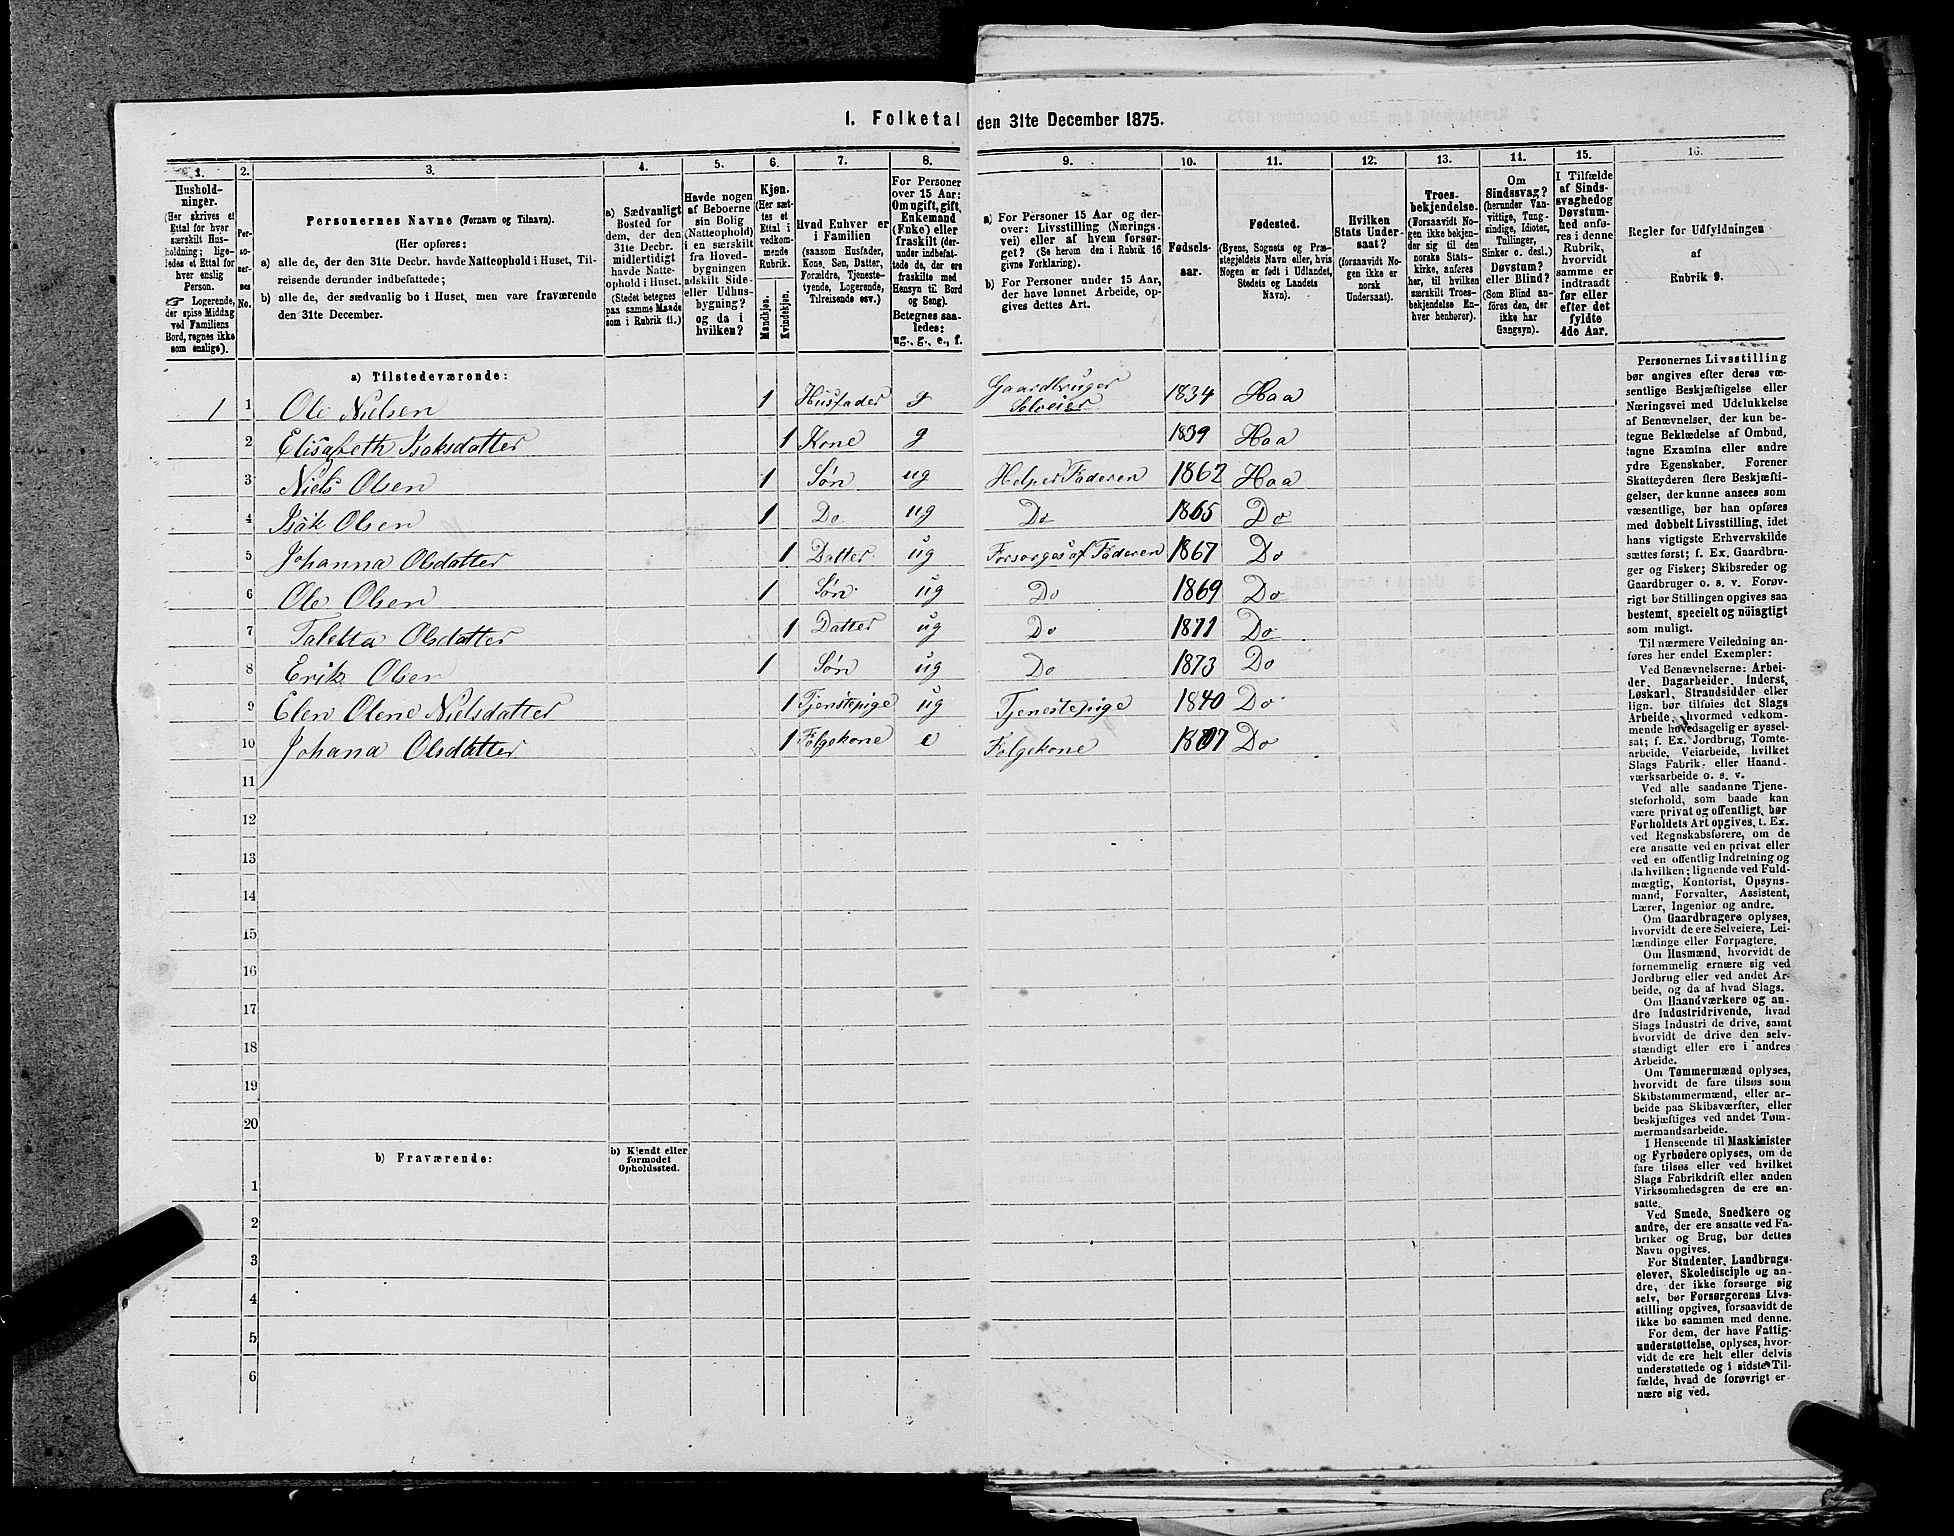 1. Folketal den 31te December 1875.
1. 2. 3. 4. 5. 6. 7. 8. 9. 10. 11. 12. 13. 14. 15. 16.
Hushold-
ninger.
(Her skrives et
Ettal for hver
særskilt Hus-
holdning; lige-
ledes et Ettal for
hver enslig
Person.
☞ Logerende,
der spise Middag
ved Familiens
Bord, regnes ikke
som enslige).
Per-
so-
ner-
nes
No.
Personernes Navne (Fornavn og Tilnavn).
(Her opføres:
a) alle de, der den 31te Decbr. havde Natteophold i Huset, Til-
reisende derunder indbefattede;
b) alle de, der sædvanlig bo i Huset, men vare fraværende
den 31te December.
a) Sædvanligt
Bosted for
dem, der den
31te Decbr.
midlertidigt
havde Natte-
ophold i Huset.
(Stedet betegnes
paa samme Maade
som i Rubrik 11.)
Havde nogen
af Beboerne
sin Bolig
(Natteophold)
i en særskilt
fra Hoved-
bygningen
adskilt Side-
eller Udhus-
bygning?
og da i
hvilken?
Kjøn.
(Her sæt-
tes et
Ettal i
vedkom-
mende
Rubrik.
Mandkjøn.
Kvindekjøn.
Hvad Enhver er
i Familien
(saasom Husfader,
Kone, Søn, Datter,
Forældre, Tjeneste-
tyende, Logerende,
Tilreisende osv.)
For Personer
over 15 Aar:
Om ugift, gift,
Enkemand
(Enke) eller
fraskilt (der-
under indbefat-
tede de, der ere
fraskilte med
Hensyn til Bord
og Seng).
Betegnes saa-
ledes:
ug., g., e., f.
a) For Personer 15 Aar og der-
over: Livsstilling (Nærings-
vei) eller af hvem forsør-
get? (Se herom den i Rubrik 16
givne Forklaring).
b) For Personer under 15 Aar,
der have lønnet Arbeide, op-
gives dettes Art.
Fødsels-
aar.
Fødested.
(Byens, Sognets og Præ-
stegjeldets Navn eller, hvis
Nogen er født i Udlandet,
Stedets og Landets
Navn).
Hvilken
Stats Under-
saat?
(forsaavidt No-
gen ikke er
norsk
Undersaat).
Troes-
bekjendelse.
(Forsaavidt No-
gen ikke bekjen-
der sig til den
norske Stats-
kirke, anføres
her, til hvilken
særskilt Troes-
bekjendelse En-
hver henhører).
Om
Sindssvag?
(herunder Van-
vittige, Tung-
sindige, Idioter,
Tullinger,
Sinker o. desl.)
Døvstum?
eller Blind?
(Som Blind an-
føres den, der
ikke har
Gangsyn).
I Tilfælde
af Sinds-
svaghed og
Døvstum-
hed anfø-
res i denne
Rubrik,
hvorvidt
samme er
indtraadt
før eller
efter det
fyldte
4de Aar.
Regler for Udfyldningen
af
Rubrik 9.
a) Tilstedeværende:
1 1 Ole Nielsen 1 Husfader g Gaardbruger Selveier 1834 Haa
2 Elisabeth Isaksdatter 1 Kone g 1839 Haa
3 Niels Olsen 1 Søn ug Helper Faderen 1862 Haa
4 Isak Olsen 1 Do ug Do 1865 Do
5 Johanna Olsdatter 1 Datter ug Forsorges af Faderen 1867 Do
6 Ole Olsen 1 Søn ug Do 1869 Do
7 Taletta Olsdatter 1 Datter ug Do 1871 Do
8 Erik Olsen 1 Søn ug Do 1873 Do
9 Elen Olene Nielsdatter 1 Tjenstepige ug Tjenestepige 1840 Do
10 Johana Olsdatter 1 Følgekone e Følgekone 1807 Do
11
12
13
14
15
16
17
18
19
20
b) Fraværende:
b) Kjendt eller
formodet
Opholdssted.
1
2
3
4
5
6
Personernes Livsstilling
bør angives efter deres væ-
sentlige Beskjæftigelse eller
Næringsvei med Udelukkelse
af Benævnelser, der kun be-
tegne Beklædelse af Ombud,
tagne Examina eller andre
ydre Egenskaber. Forener
Skatteyderen flere Beskjæfti-
gelser, der kunne ansees som
væsentlige, bør han opføres
med dobbelt Livsstilling, idet
hans vigtigste Erhvervskilde
sættes først; f. Ex. Gaardbru-
ger og Fisker; Skibsreder og
Gaardbruger o. s. v. Forøv-
rigt bør Stillingen opgives saa
bestemt, specielt og nöiagtigt
som muligt.
Til nærmere Veiledning an-
føres her endel Exempler:
Ved Benævnelserne: Arbei-
der, Dagarbeider, Inderst,
Løskarl, Strandsidder eller
lign. bør tilføies det Slags
Arbeide, hvormed vedkom-
mende hovedsagelig er syssel-
sat; f. Ex. Jordbrug, Tomte-
arbeide, Veiarbeide, hvilket
Slags Fabrik- eller Haand-
værksarbeide o. s. v.
Ved alle saadanne Tjene-
steforhold, som baade kan
være privat og offentligt, bør
Forholdets Art opgives, t. Ex.
ved Regnskabsførere, om de
ere ansatte ved en privat eller
ved en offentlig Indretning og
da hvilken; lignende ved Fuld-
mægtig, Kontorist, Opsyns-
mand, Forvalter, Assistent,
Lærer, Ingeniør og andre.
Om Gaardbrugere oplyses,
hvorvidt de ere Selveiere, Lei-
lændinge eller Forpagtere.
Om Husmænd, hvorvidt de
fornemmelig ernære sig ved
Jordbrug eller ved andet Ar-
beide, og da af hvad Slags.
Om Haandværkere og an-
dre Industridrivende, hvad
Slags Industri de drive, samt
hvorvidt de drive den selv-
stændigt eller ere i andres
Arbeide.
Om Tømmermænd oplyses,
hvorvidt de fare tilsøs som
Skibstømmermænd, eller ar-
beide paa Skibsværfter, eller
beskjæftiges ved andet Tøm-
mermandsarbeide.
I Henseende til Maskinister
og Fyrbødere oplyses, om de
fare tilsøs eller ved hvilket
Slags Fabrikdrift eller anden
Virksomhedsgren de ere an-
satte.
Ved Smede, Snedkere og
andre, der ere ansatte ved Fa-
briker og Brug, bør dettes
Navn opgives.
For Studenter, Landbrugs-
elever, Skoledisciple og an-
dre, der ikke forsørge sig
selv, bør Forsørgerens Livs-
stilling opgives, forsaavidt de
ikke bo sammen med denne.
For dem, der have Fattig-
understøttelse, oplyses, hvor-
vidt de ere helt eller delvis
understøttede og i sidste Til-
fælde, hvad de forøvrigt er-
nære sig ved.